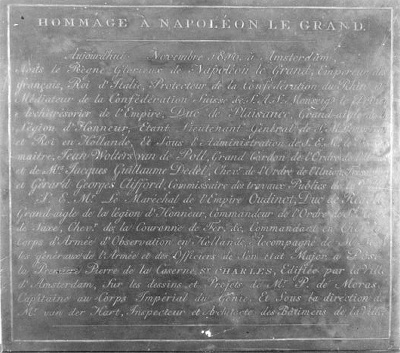 HOMMAGE À NAPOLÉON LE GRAND.
Aujourdhui Novembre 1810, à Amsterdam
Sous le Règne Glorieux de Napoléon le Grand, Empereur des
français, Roi d'Italie, Protecteur de la Confédération du Rhin
Médiateur de la Confédération Suisse
Architrésorier de l'Empire, Duc de Plaisance, Grand-aigle
Légion d'Honneur, Etant Lieutenant Général de
et Roi en Hollande, Et Sous l'Administration de S.E.
maître, Jean Wolters van de Poll, Grand Cordon de l'Ordre de
et de Mrs Jacques Guillaume Dedel, Chevr. de l'Ordre de l'Union
et Gérard Georges Clifford, Commissaire du travaux Publics
S. E. Mr. Le Maréchal de l'Empire Oudinot, Duc de
Grand-aigle de la légion d'Honneur, Commandeur de l'Ordre
de Saxe, Chevr. de la Couronne de Fer, &c, Commandant en Chef
Corps d'Armée d'Observation en Hollande, Accompagné de
les généraux de l'Armée et des Officiers de Son état Major, à Posé
la Pierre de la Caserne St. CHARLES, Edifiée par la Ville
d'Amsterdam, Sur les dessins et Projets de Mr. P. de Moras,
Capitaine au Corps Impérial du Génie, Et Sous la direction de
Mr. van der Hart, Inspecteur et Architecte des Bâtimens de la Ville